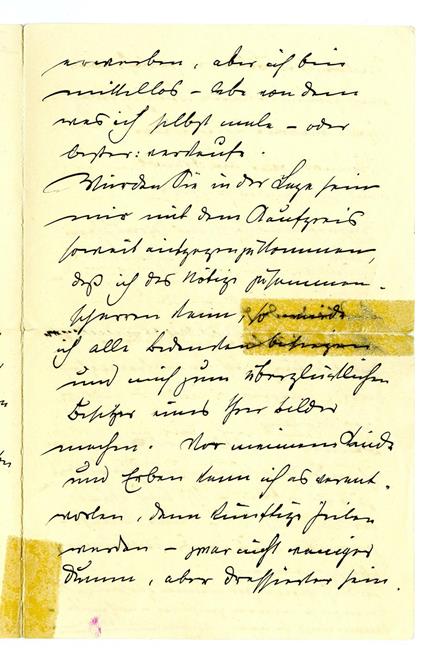 erwerben, aber ich bin
mittellos – lebe von dem
was ich selbst male – oder
besser: verkaufe.
Würden Sie in der Lage sein
mir mit dem Kaufpreis
soweit entgegenzukommen,
daß ich das Nötige zusammen-
scharren kann, so würde
ich alle Bedenken besiegen
und mich zum überglücklichen
Besitzer eines Ihrer Bilder
machen. Vor meinem Kinde
und Erben kann ich es verant-
worten, denn künftige Zeiten
werden – zwar nicht weniger
dumm, aber dressierter sein.